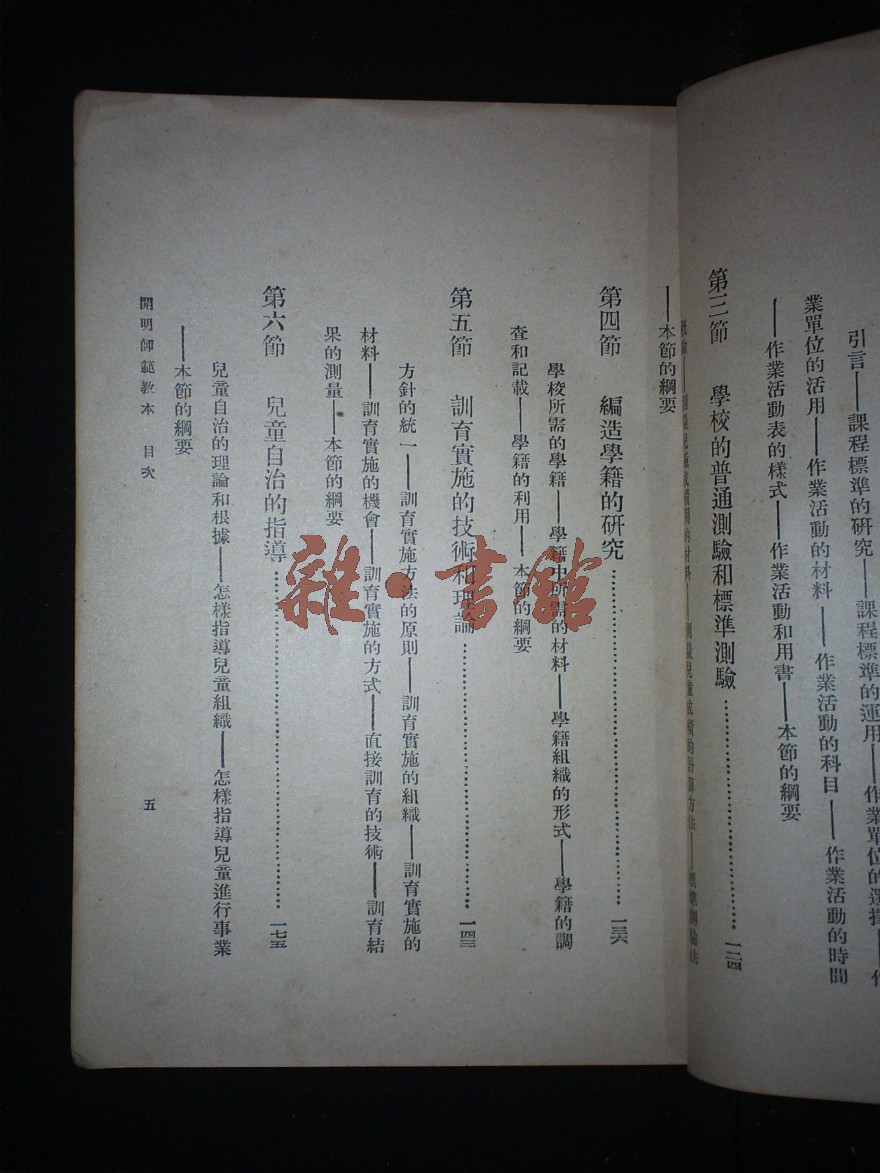 引言——課程標準的研究——課程標準的運用——作業單位的選擇——作
業單位的活用——作業活動的材料——作業活動的科目——作業活動的時間
——作業活動表的樣式——作業活動和用書——本節的綱要
第三節 學校的普通測驗和標準測驗…………一二四
測量兒童成績用的材料——測量兒童成績的計算方法——標準測驗法
——本節的綱要
第四節 編造學籍的研究…………一三六
學校所需的學籍——學籍中所需的材料——學籍組織的形式——學籍的調
查和記載——學籍的利用——本節的綱要
第五節 訓育實施的技術和理論…………一四三
方針的統一——訓育實施方法的原則——訓育實施的組織——訓育實施的
材料——訓育實施的機會——訓育實施的方式——直接訓育的技術——訓育結
果的測量——本節的綱要
第六節 兒童自治的指導…………一七五
兒童自治的理論和根據——怎樣指導兒童組織——怎樣指導兒童進行事業
——本節的綱要
開明師範教本 目次
五
雜·書館